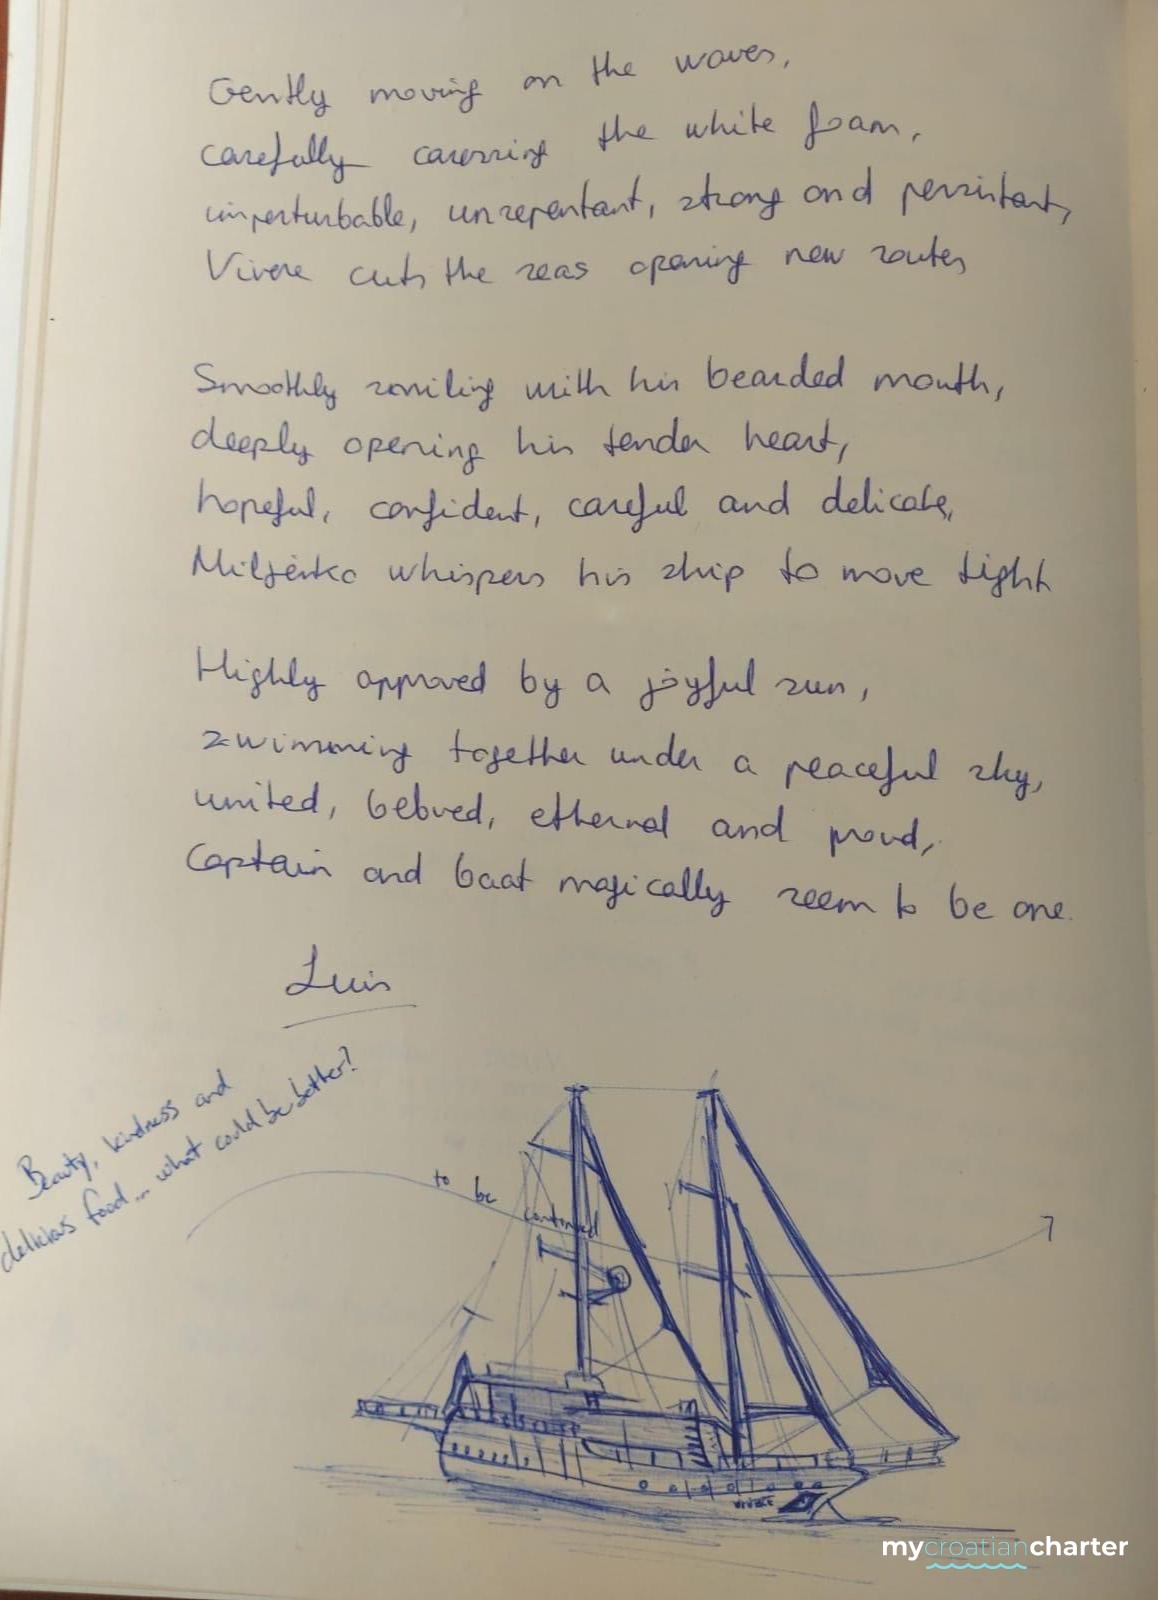 Gently moving on the waves,
carefully caressing the white foam,
imperturbable, unrepentant, strong and persistant,
Vivere cuts the seas opening new routes
Smoothly smiling with his bearded mouth,
deeply opening his tender heart,
hopeful, confident, careful and delicate,
Miljenko whispers his ship to move tight
Highly approved by a joyful sun,
swimming together under a peaceful sky,
united, beloved, ethernal and proud,
Captain and boat magically seem to be one.
Luis
Beauty, kindness and
delicious food... what could be better?
to be continued
VIVERE
mycroatiancharter